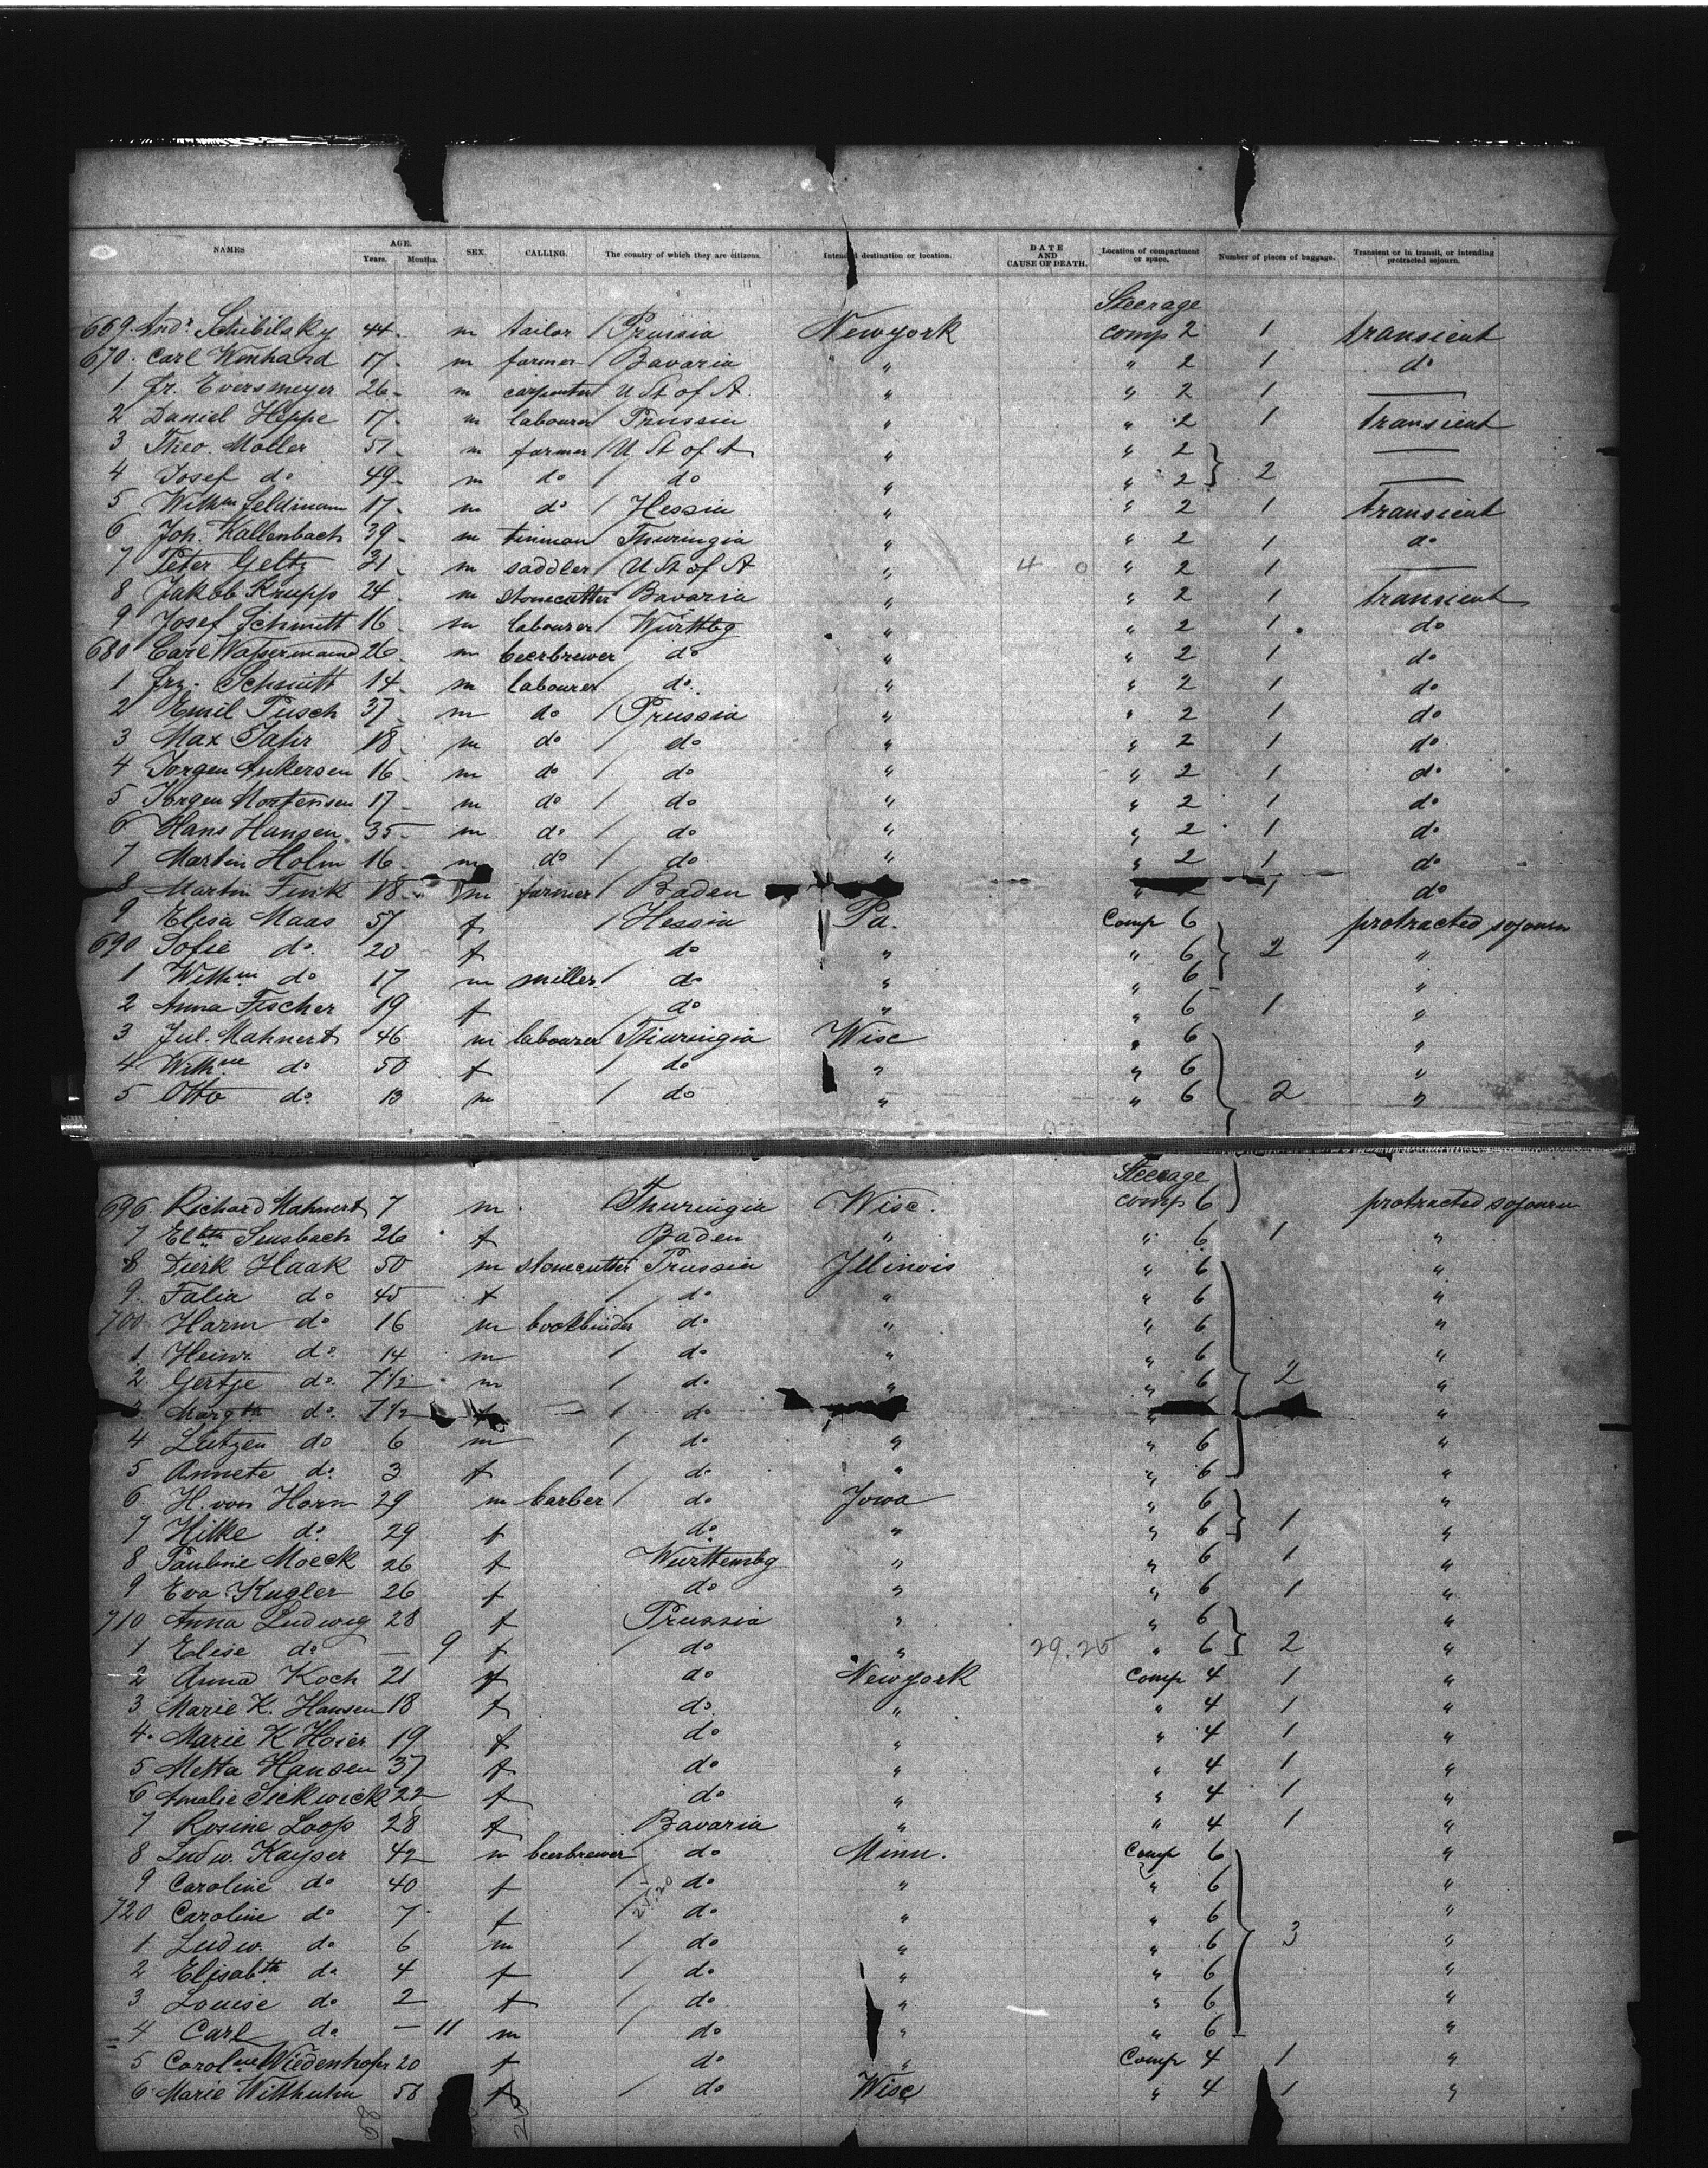 NAMES AGE. Years. Months. SEX. CALLING. The country of which they are citizens. Intended destination or location. DATE AND CAUSE OF DEATH. Location of compartment or space. Number of pieces of baggage. Transient or in transit, or intending protracted sojourn.
Steerage
669. Andr. Schibilsky 44 m tailor / Prussia Newyork comp 2 1 transient
670. Carl Wenhand 17 m farmer / Bavaria " " 2 1 do
1 Fr. Eversmeyer 26 m carpenter / U St of A " " 2 1 —
2 Daniel Heppe 17 m labourer / Prussia " " 2 1 transient
3 Theo. Moller 51 m farmer / U St of A " " 2 —
4 Josef do 49 m do / do " " 2 } 2 —
5 Wilhm Feldmann 17 m do / Hessia " " 2 1 transient
6 Joh. Kallenbach 39 m tinman Thuringia " " 2 1 do
7 Peter Geltz 21 m saddler / U St of A " 4 0 " 2 1 —
8 Jakob Krupp 24 m stonecutter Bavaria " " 2 1 transient
9 Josef Schmitt 16 m labourer / Württbg " " 2 1 do
680 Carl Wassermann 26 m beerbrewer do " " 2 1 do
1 Frz. Schmitt 14 m labourer / do " " 2 1 do
2 Emil Pusch 37 m do / Prussia " " 2 1 do
3 Max 18 m do / do " " 2 1 do
4 Jorgen Ankersen 16 m do / do " " 2 1 do
5 Jorgen Mortensen 17 m do / do " " 2 1 do
6 Hans Hansen 35 m do / do " " 2 1 do
7 Martin Holm 16 m do / do " " 2 1 do
8 Martin Fink 18 m farmer / Baden 1 do
9 Elisa Maas 57 f / Hessia Pa. Comp 6 protracted sojourn
690 Sofie do 20 f do " " 6 } 2 "
1 Wilhm do 17 m miller / do " " 6 "
2 Anna Fischer 19 f do " " 6 1 "
3 Jul. Mahnert 46 m labourer / Thuringia Wisc " 6 "
4 Wilhne do 50 f / do " " 6 "
5 Otto do 13 m / do " " 6 2 "
Steerage
696 Richard Mahnert 7 m Thuringia Wisc. comp 6 protracted sojourn
7 Elbth Sensbach 26 f Baden " " 6 1 "
8 Dierk Haak 50 m stonecutter Prussia Illinois " 6 "
9 Falia do 45 f / do " " 6 "
700 Harm do 16 m bookbinder do " " 6 "
1 Heinr. do 14 m / do " " 6 "
2 Gertje do 7 1/2 m / do " " 6 2 "
3 Margth do 7 1/2 f / do " "
4 Lutzen do 6 m / do " " 6 "
5 Annete do 3 f / do " " 6 "
6 H. von Horn 29 m barber / do Iowa " 6 "
7 Hilke do 29 f do " " 6 } 1 "
8 Pauline Moeck 26 f Württembg " " 6 1 "
9 Eva Kugler 26 f do " " 6 1 "
710 Anna Ludwig 28 f Prussia " " 6 "
1 Elise do — 9 f / do " 29.25 " 6 } 2 "
2 Anna Koch 21 f do Newyork Comp 4 1 "
3 Marie K. Hansen 18 f do " " 4 1 "
4 Marie K Hoier 19 f do " " 4 1 "
5 Metta Hansen 37 f do " " 4 1 "
6 Amalie Sickwick 22 f do " " 4 1 "
7 Rosine Loop 28 f Bavaria " " 4 1 "
8 Ludw. Kayser 42 m beerbrewer / do Minn. Comp 6 "
9 Caroline do 40 f / do " " 6 "
720 Caroline do 7 f / do " " 6 "
1 Ludw. do 6 m / do " " 6 3 "
2 Elisabth do 4 f / do " " 6 "
3 Louise do 2 f / do " " 6 "
4 Carl do — 11 m / do " " 6 "
5 Carolne Wiedenhofer 20 f do " Comp 4 1 "
6 Marie Witthuhn 58 f / do Wisc " 4 1 "